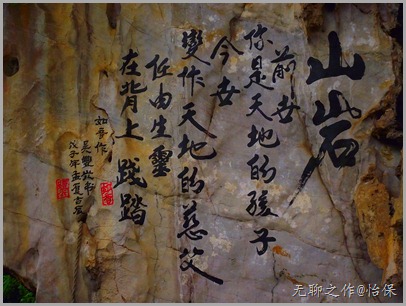 山岩
前世
你是天地的孩子
今世
變作天地的慈父
任由生靈
在背上踐踏
戊子年孟夏吉辰
无聊之作@怡保